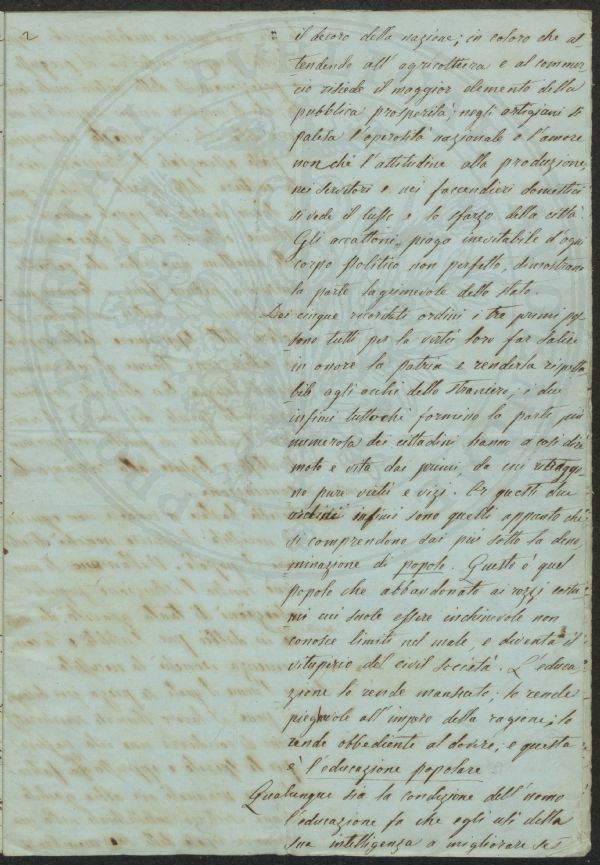 2
il decoro della nazione; in coloro che at
tendendo all' agricoltura e al commer
cio risiede il maggior elemento della
pubblica prosperità; negli artigiani si
palesa l'operosità nazionale e l'amore
non chè l'attitudine alla produzione,
nei servitori e nei faccendieri domestici
si vede il lusso e lo sfarzo della città.
Gli accattoni, piaga inevitabile d'ogni
corpo politico non perfetto, dimostrano
la parte lagrimevole dello stato.
Dei cinque ricordati ordini i tre primi pos
sono tutti per la virtù loro far salire
in onore la patria e renderla rispetta
bile agli occhi dello straniero; i due
infimi tuttochè formino la parte più
numerosa dei cittadini hanno a così dire
moto e vita dai primi, da cui ritraggo
no pure virtù e vizi. Or questi due
ordini infimi sono quelli appunto che
si comprendono dai più sotto la deno
minazione di popolo. Questo è quel
popolo che abbandonato ai rozzi costu
mi cui suole essere inchinevole non
conosce limiti nel male, e diventa il
vituperio del civil società. L'educa
zione lo rende mansueto; lo rende
pieghevole all'impero della ragione; lo
rende obbediente al dovere; e questa
è l'educazione popolare
Qualunque sia la condizione dell'uomo
l'educazione fa che egli usi della
sua intelligenza a migliorare sè